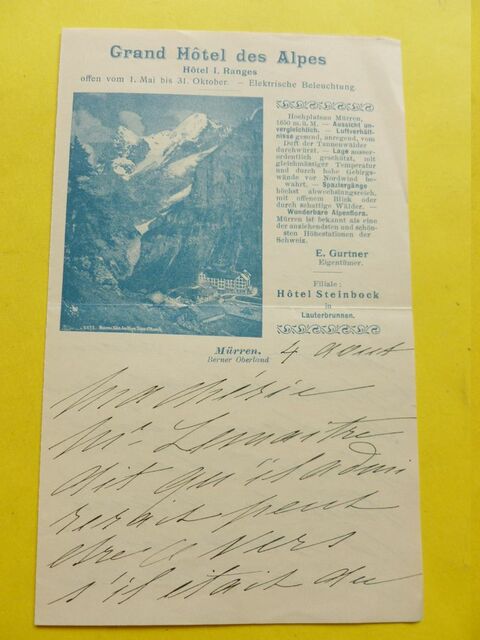 Grand Hôtel des Alpes
Hôtel I. Ranges
offen vom 1. Mai bis 31. Oktober. — Elektrische Beleuchtung.
Hochplateau Mürren,
1650 m. ü. M. — Aussicht un-
vergleichlich. — Luftverhält-
nisse gesund, anregend, vom
Duft der Tannenwälder
durchwürzt. — Lage ausser-
ordentlich geschützt, mit
gleichmässiger Temperatur
und durch hohe Gebirgs-
wände vor Nordwind be-
wahrt. — Spaziergänge
höchst abwechslungsreich,
mit offenem Blick oder
durch schattige Wälder. —
Wunderbare Alpenflora.
Mürren ist bekannt als eine
der anziehendsten und schön-
sten Höhestationen der
Schweiz.
E. Gurtner
Eigentümer.
Filiale:
Hôtel Steinbock
in
Lauterbrunnen.
Mürren.
Berner Oberland
4 aout
Ma chérie
Mr. Lemaître
dit qu'il admi
rerait peut
etre ce vers
s'il était de